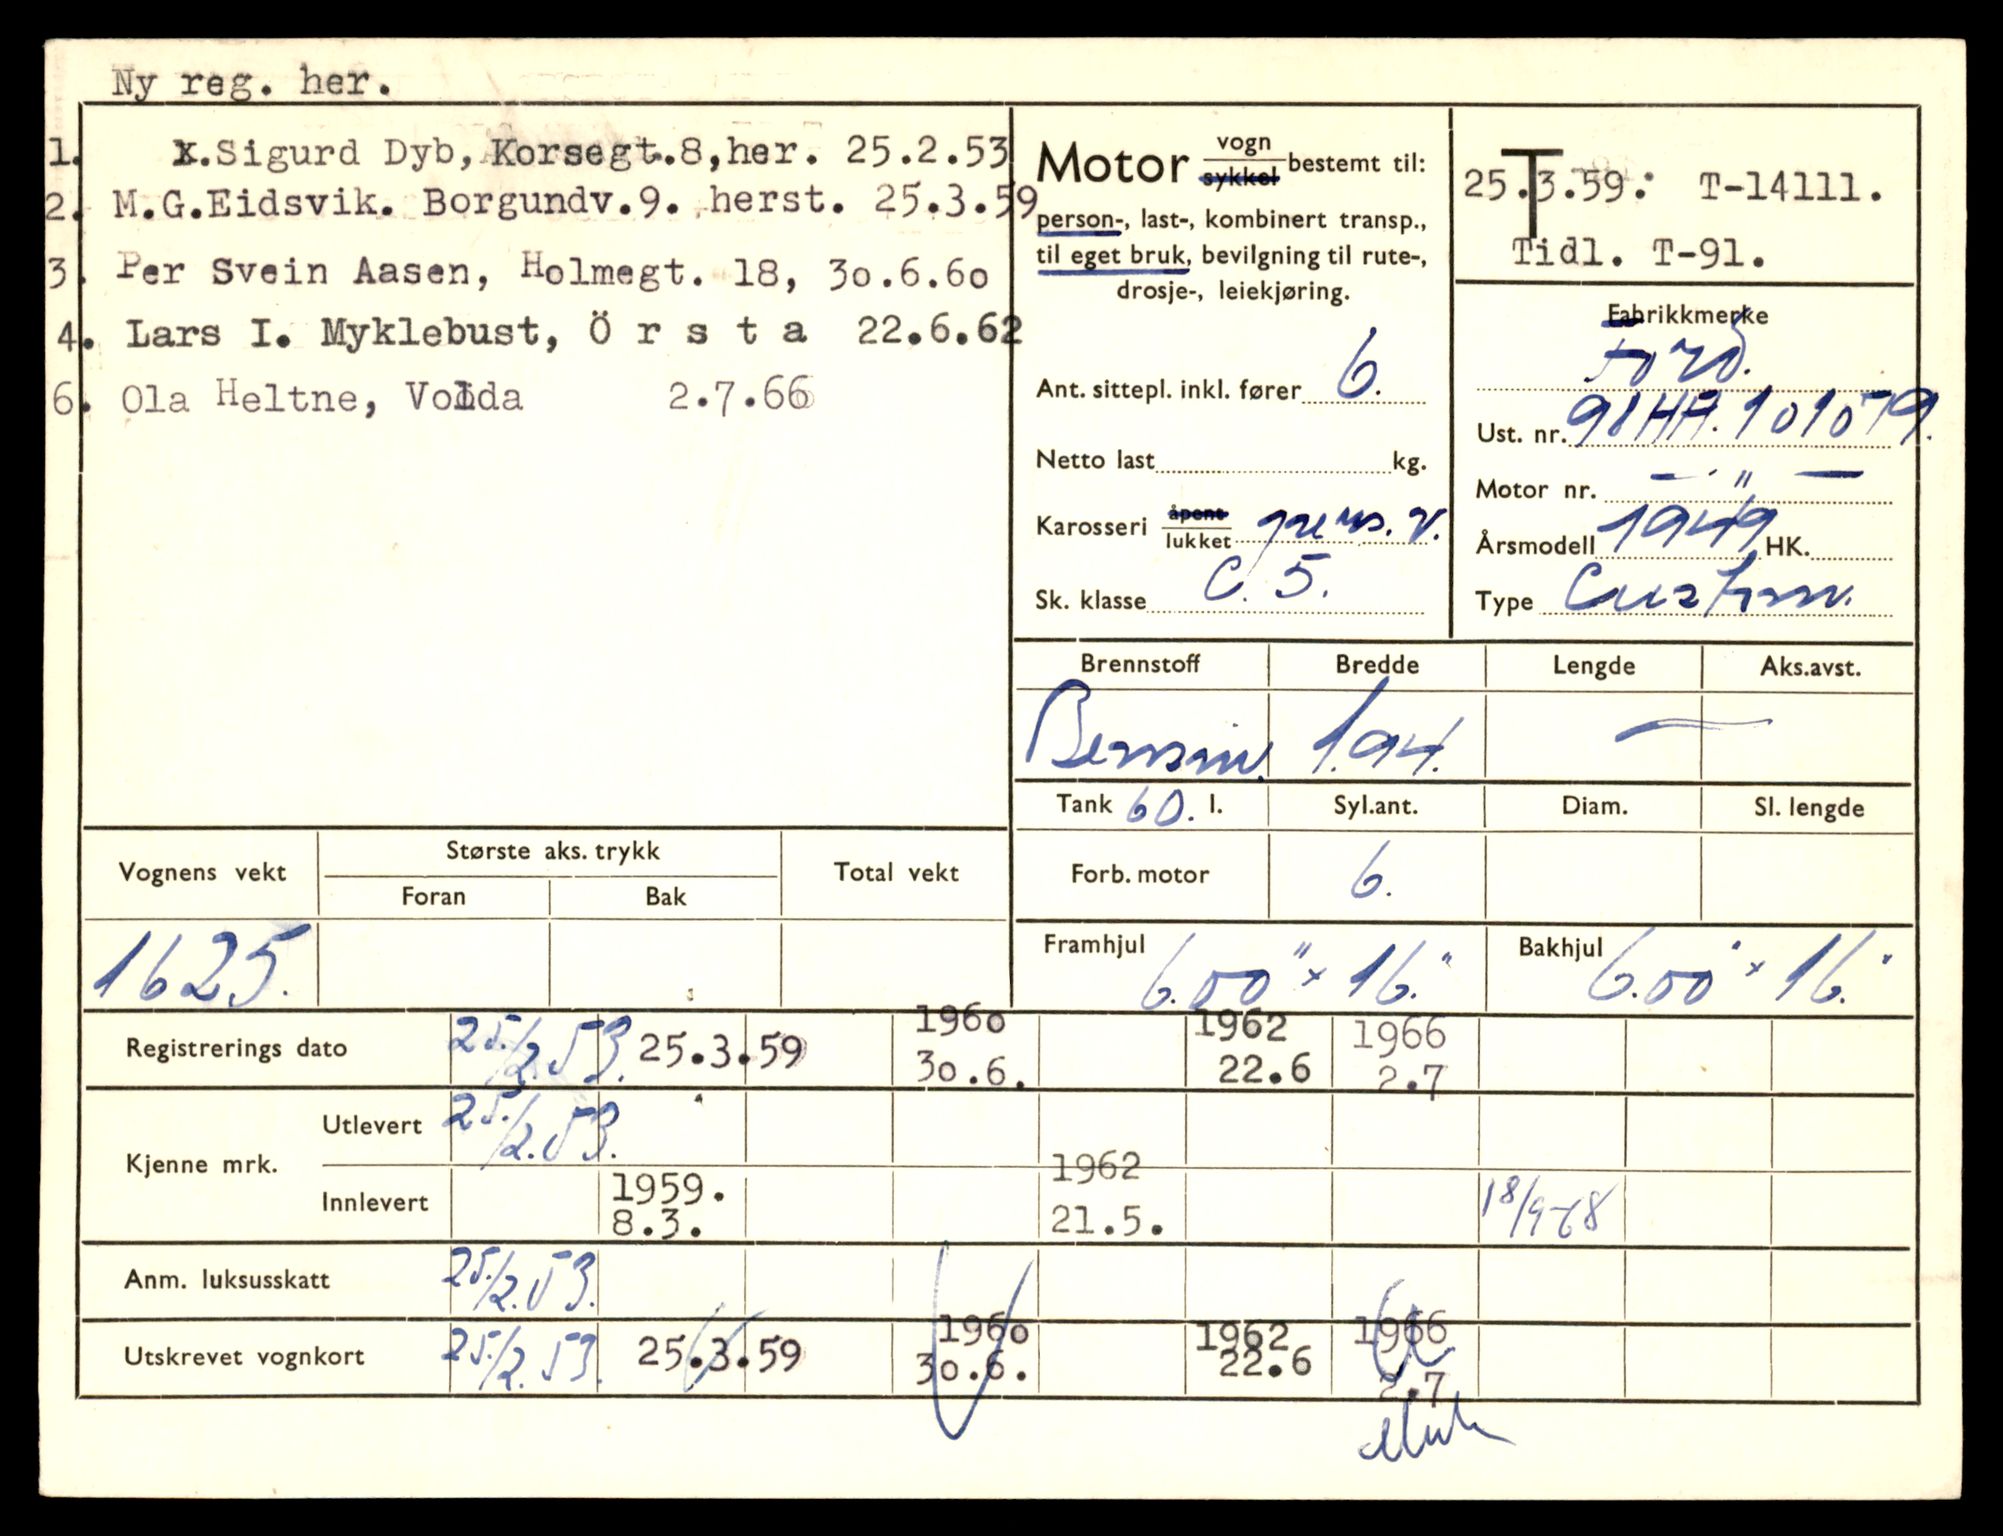 Ny reg. her.
1. x.Sigurd Dyb, Korsegt.8,her. 25.2.53
2. M.G.Eidsvik. Borgundv.9. herst. 25.3.59
3. Per Svein Aasen, Holmegt. 18, 30.6.60
4. Lars I. Myklebust, Ö r s t a 22.6.62
6. Ola Heltne, Volda 2.7.66
Motor vogn sykkel bestemt til:
person-, last-, kombinert transp.,
til eget bruk, bevilgning til rute-,
drosje-, leiekjøring.
Ant. sittepl. inkl. fører 6.
Netto last kg.
Karosseri åpent lukket pers. v.
Sk. klasse C. 5.
T
25.3.59: T-14111.
Tidl. T-91.
Fabrikkmerke
Ford.
Ust. nr. 98HA.101079.
Motor nr. — " —
Årsmodell 1949 HK.
Type Custom.
Brennstoff Bredde Lengde Aks.avst.
Bensin. 1.94. —
Tank 60. l. Syl.ant. Diam. Sl. lengde
Forb. motor 6.
Framhjul 6.00" x 16." Bakhjul 6.00" x 16."
Vognens vekt Største aks. trykk Total vekt
Foran Bak
1625.
Registrerings dato 25/2.53. 25.3.59 1960 30.6. 1962 22.6 1966 2.7
Kjenne mrk. Utlevert 25/2.53.
Innlevert 1959. 8.3. 1962 21.5. 18/9-68
Anm. luksusskatt 25/2.53.
Utskrevet vognkort 25/2.53. 25.3.59 1960 30.6. 1962 22.6 1966 2.7